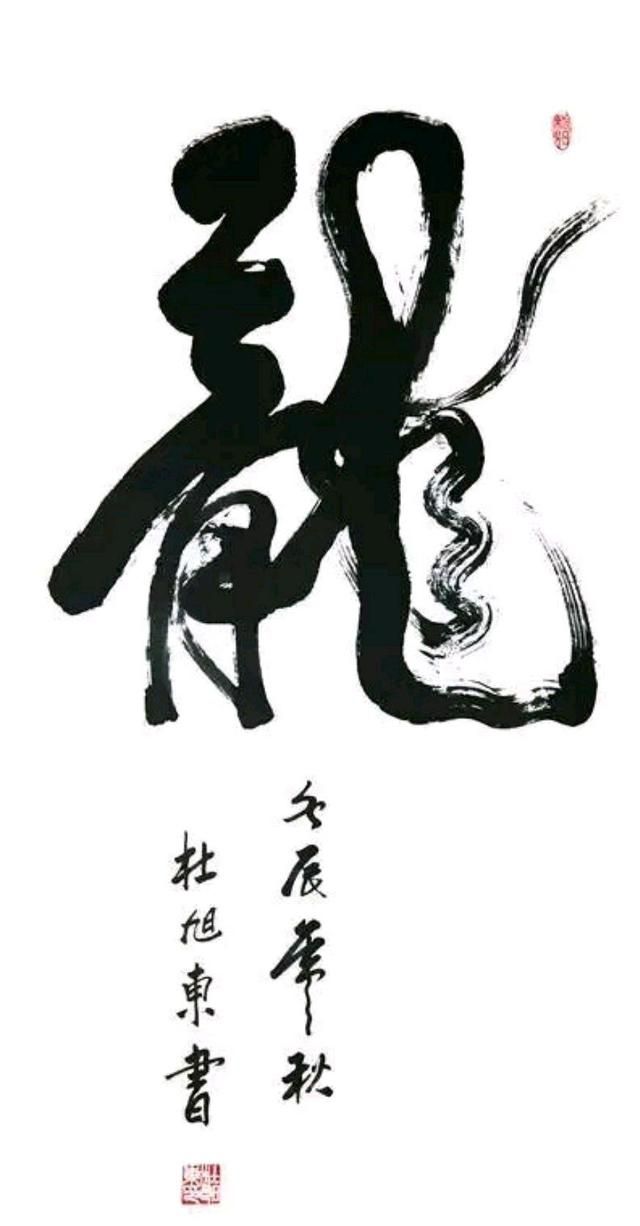 龍
壬辰秋
杜旭東書